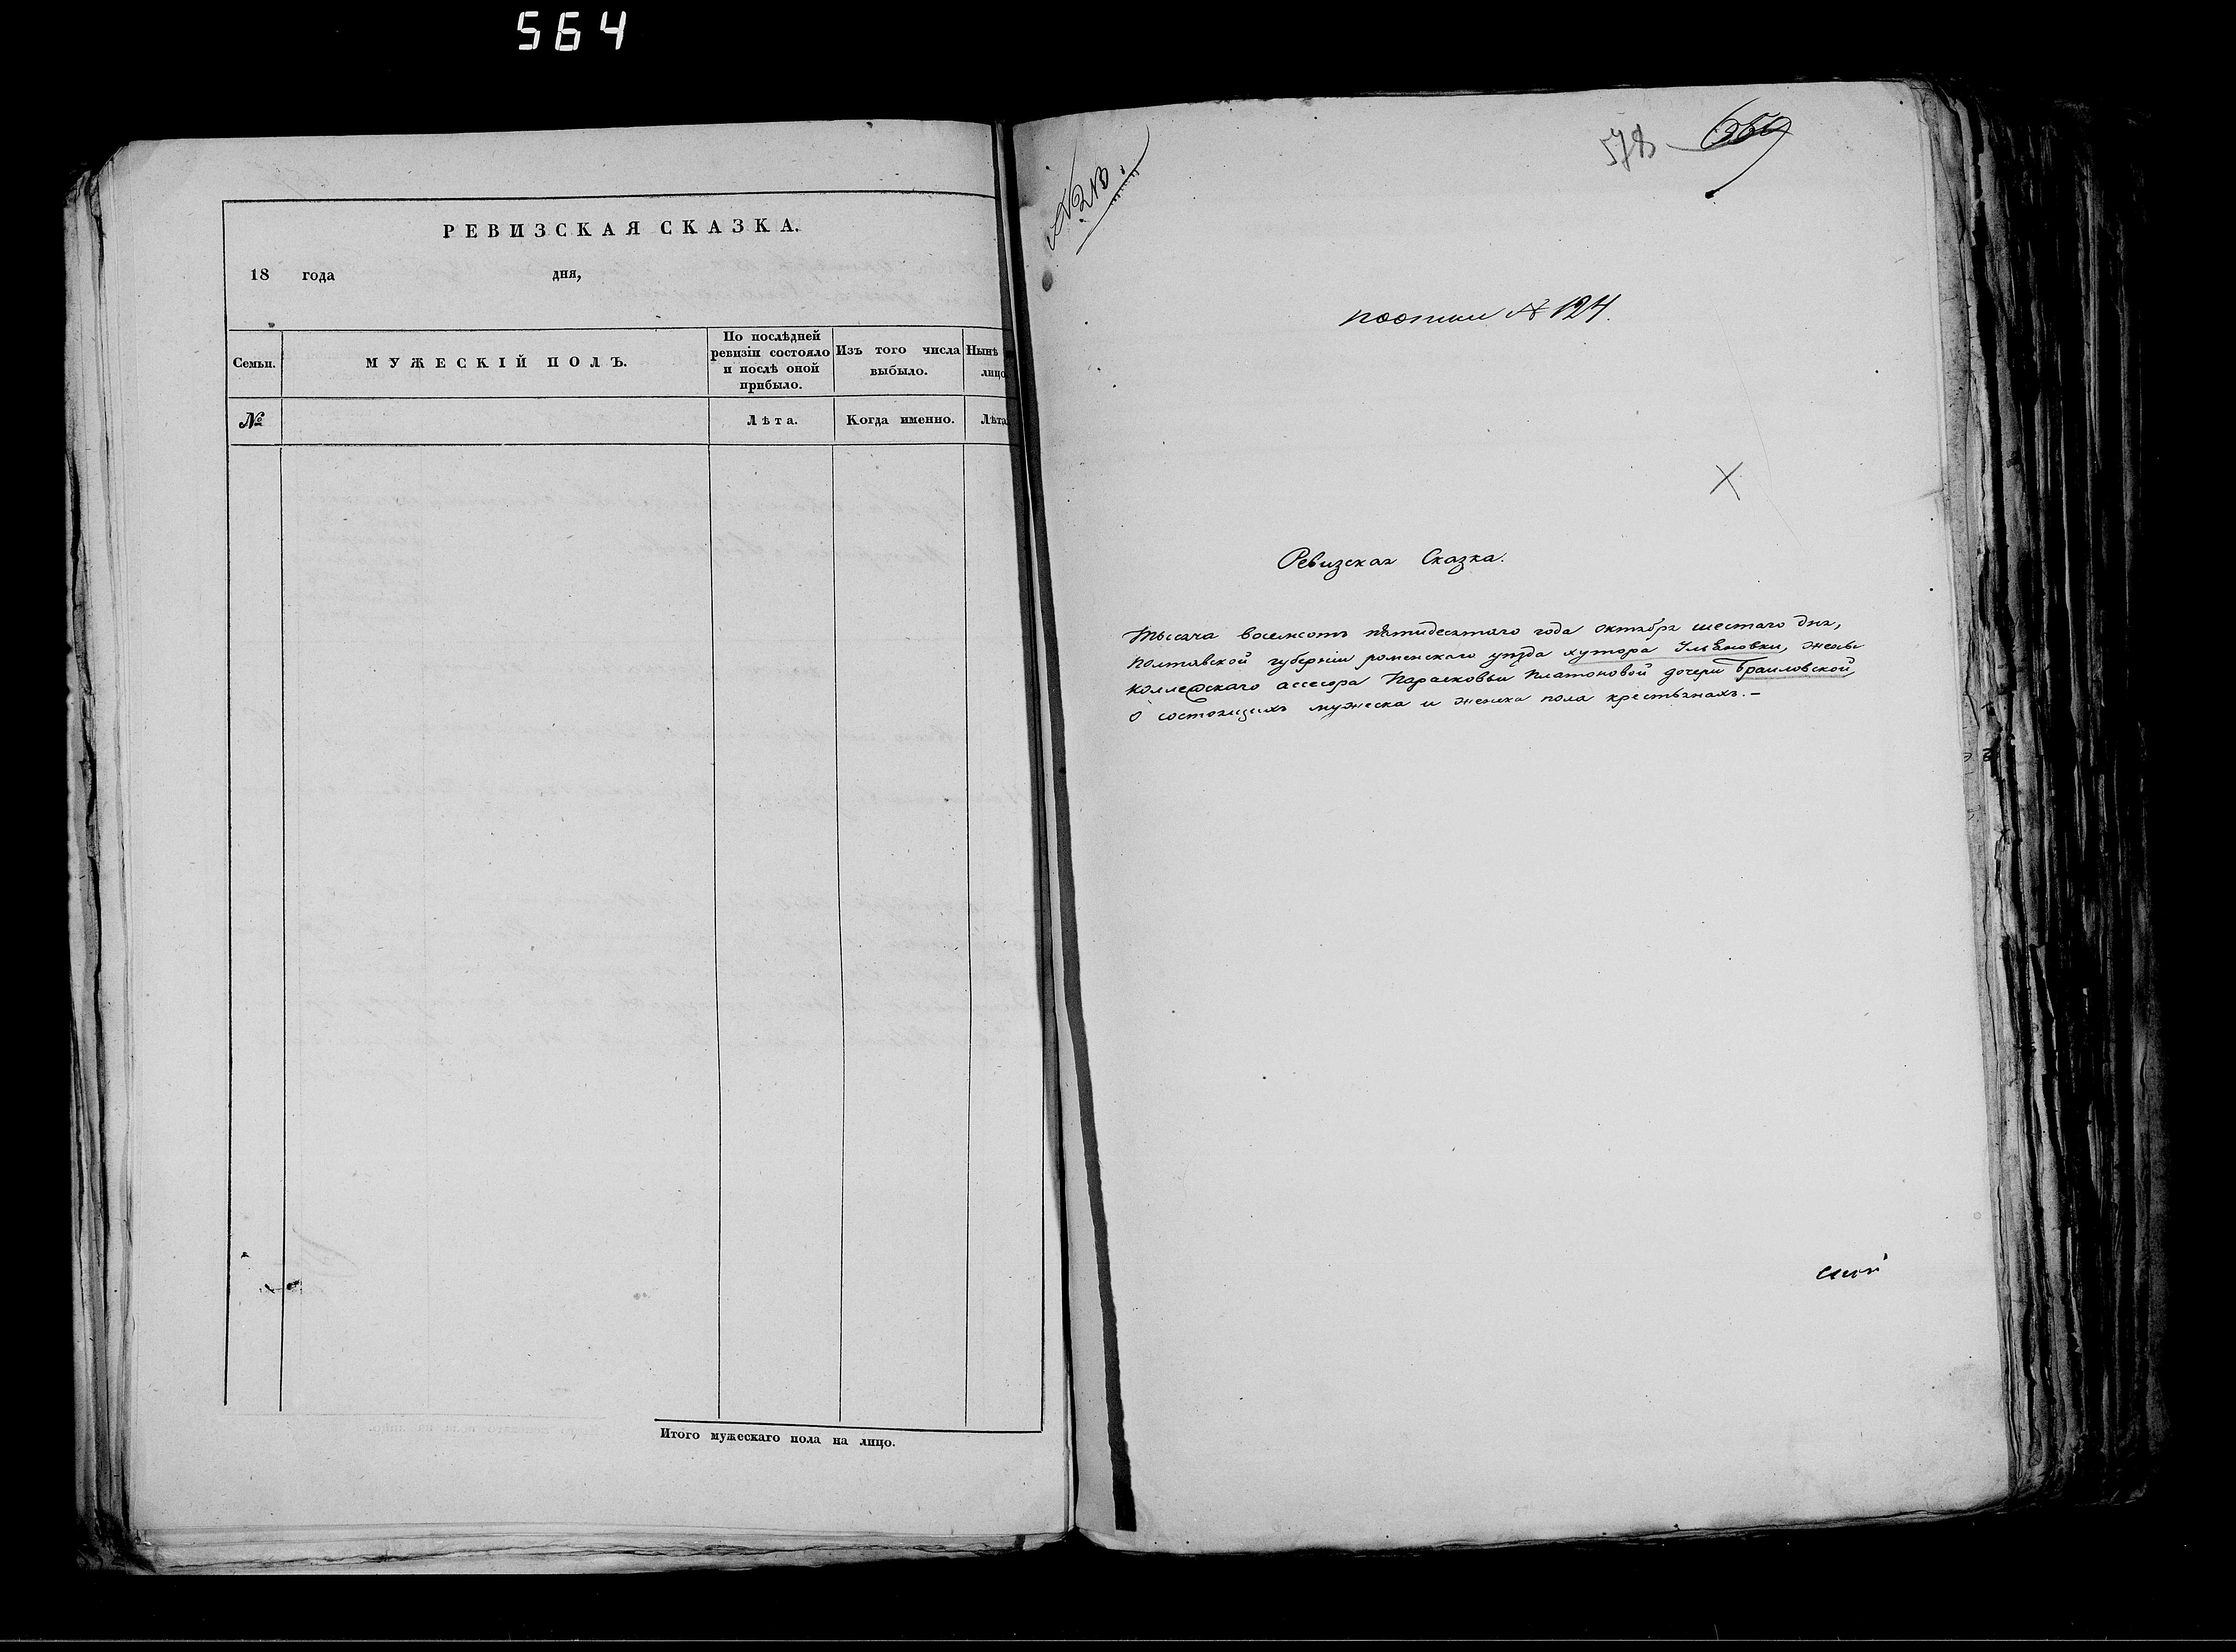 564
РЕВИЗСКАЯ СКАЗКА.
18 года дня,
Семьи.
МУЖЕСКІЙ ПОЛЪ.
По послѣдней ревизіи состояло и послѣ оной прибыло.
Изъ того числа выбыло.
Нынѣ лицо
№
Лѣта.
Когда именно.
Лѣта
Итого мужескаго пола на лицо.
№213.
578
по описи № 124.
Ревизская Сказка.
Тысяча восемсотъ пятидесятаго года октября шестаго дня,
Полтавской губерніи роменскаго уезда хутора Ульяновки, жены
коллежскаго ассесора Парасковьи Платоновой дочери Браиловской,
о состоящихъ мужеска и женска пола крестьянахъ.—